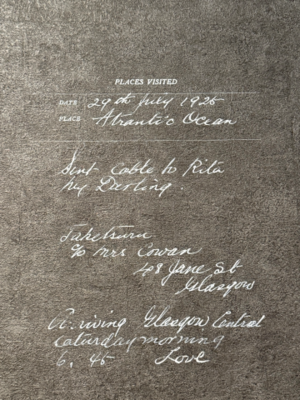 PLACES VISITED
DATE 29th July 1925
PLACE Atlantic Ocean
Sent Cable to Rita
My Darling.
Taketsuru
c/o Mrs Cowan
48 Jane St
Glasgow
Arriving Glasgow Central
Saturday morning
6. 45 Love